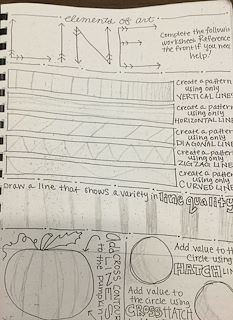 elements of art
LINE
Complete the following
worksheet. Reference
the front if you need
help!
Create a pattern
using only
VERTICAL LINES
Create a pattern
using only
HORIZONTAL LINES
Create a pattern
using only
DIAGONAL LINES
Create a pattern
using only
ZIGZAG LINES
Create a pattern
using only
CURVED LINES
Draw a line that shows a variety in line quality
Add CROSS CONTOUR
LINES
to the pumpkin
Add value to the
circle using
HATCH LINES
Add value to
the circle using
CROSSHATCH